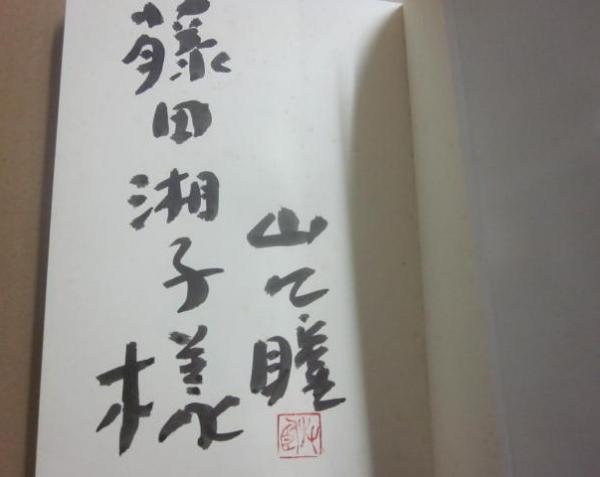 山口瞳
藤田湘子様